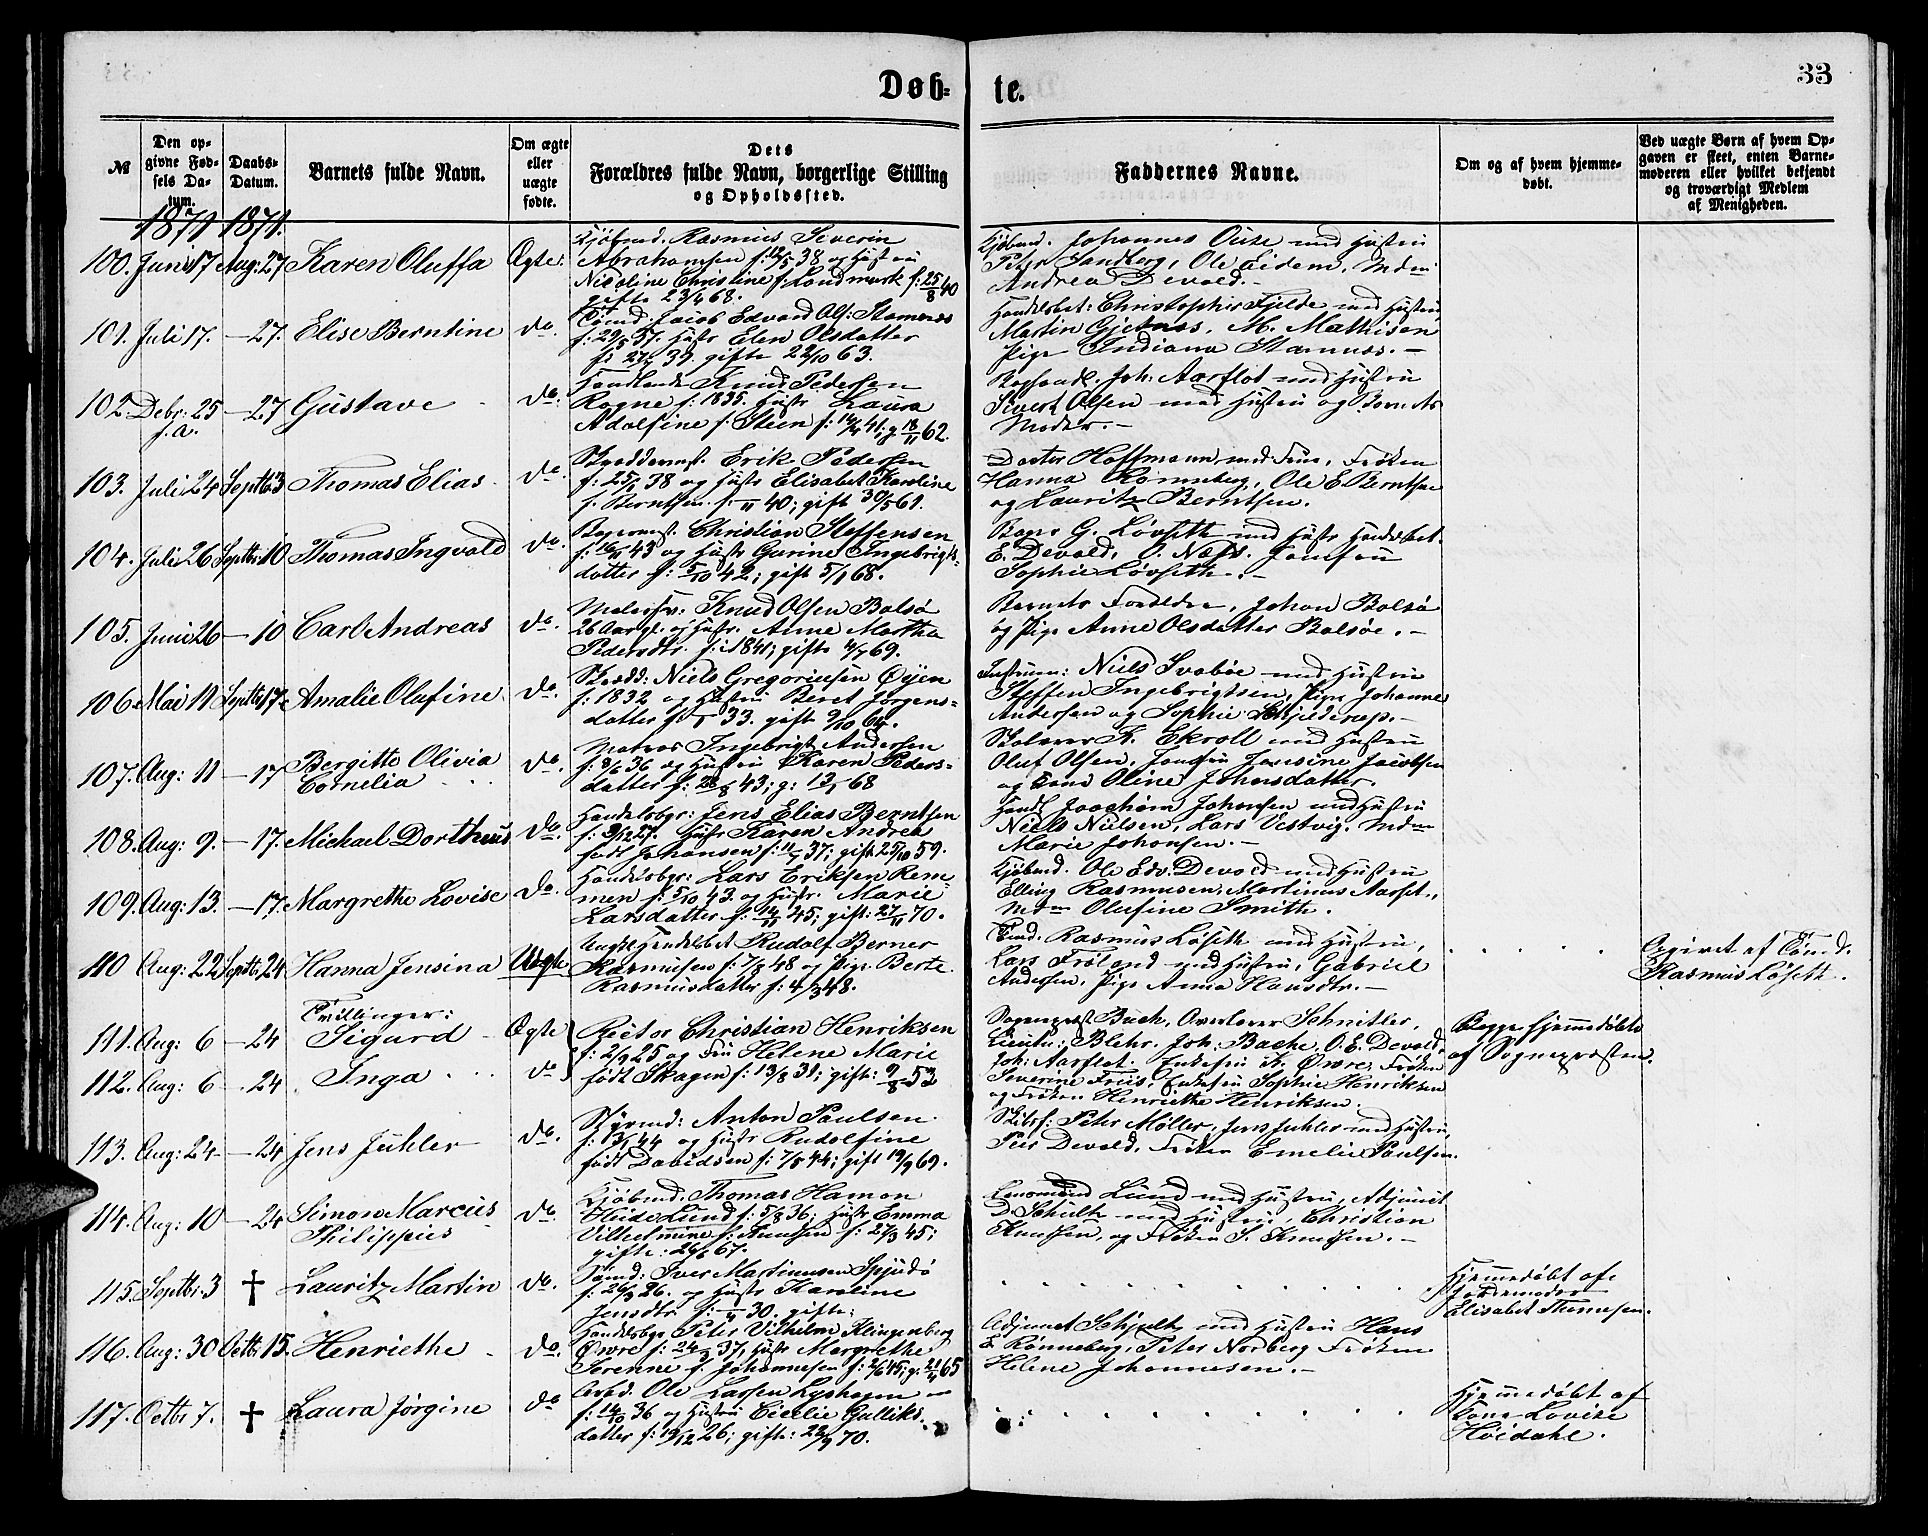 Døb-
te.
33
№
Den op-
givne Fød-
sels Da-
tum.
Daabs-
Datum.
Barnets fulde Navn.
Om ægte
eller
uægte
fødte.
Dets
Forældres fulde Navn, borgerlige Stilling
og Opholdssted.
Faddernes Navne.
Om og af hvem hjemme-
døbt.
Ved uægte Børn af hvem Op-
gaven er skeet, enten Barne-
moderen eller hvilket bekjendt
og troværdigt Medlem
af Menigheden.
1871 1871.
100. Juni 17 Aug: 27 Karen Oluffa Ægte:
Kjøbmd. Rasmus Severin
Abrahamsen f: 12/5 38 og Hustru
Nicoline Christine f: Landmark f: 25/8 40
gifte 23/4 68.
Kjøbmd. Johannes Ouse med Hustru
Peter Sandberg, Ole Eidem, Mdm
Andrea Devold.-
101. Juli 17. -27. Elise Berntine do.
Tømd: Jacob Edvard Ols: Stamnes
37. Hustr Elen Olsdatter
gifte 22/10 63.
Handelsbet: Christopher Fjelde med Hustru
Martin Gjetnæs, M. Mathisen
Pige Indiana Stamnæs.-
102. Debr: 25 -27 Gustave do.
f.a.
Handlende Knud Pedersen
Rogne f: 1835. Hustr Laura
Adolfine f. Steen 41; g. 18/11 62.
Boghandl. Joh. Aarflot med Hustru
Sivert Olsen med Hustru og Barnets
Moder.-
103. Juli 24 Septbr 3 Thomas Elias. do.
Skræddermst. Erik Pedersen
38 og Hustr Elisabet Karoline
f. Berntsen 40; gift 30/5 61.
Doctor Hoffmann med Frue, Frøken
Hanna Rønneberg, Ole E. Berntsen
og Lauritz Berntsen.
104. Juli 26 Septbr: 10 Thomas Ingvald do.
Bagermst. Christian Steffensen
43 og Hustr Gurine Ingebrigts-
datter f: 5/10 42; gift 5/1 68.
Bager G. Løvseth med Hustr Handelsbet.
E. Devold, O. Næss. Jomfru
Sophie Løvseth.-
105. Juni 26 -10 Carl Andreas do.
Malersv: Knud Olsen Bolsø
26 Aar gl. og Hustr. Anne Martha
Pedersdtr. f: 1841; gifte 69.
Barnets Forældre, Johan Bolsø
og Pige Anne Olsdatter Bolsøe.-
106. Mai 11 Septbr 17. Amalie Olufine do.
Skrædd: Niels Gregoriusen Øyen
f: 1832 og Hustru Beret Jørgens-
datter 33. gift 9/10 64.
Instrum: Niels Svabøe med Hustru
Steffen Ingebrigtsen, Pige Johanne
Andersen og Sophie Schjelderup.-
107. Aug: 11 -17 Bergitte Olivia do.
Cornelia
Matros Ingebrigt Andersen
36 og Hustru Karen Peders-
datter 43; g: 68
Skolærer K. Ekroll med Hustru
Oluf Olsen, Jomfru Jensine Jacobsen
og Oline Johnsdatter.
108. Aug: 9. -17. Michael Dorthius do.
Handelsbgr: Jens Elias Berntsen
f: 9/12 27. Hustr Karen Andrea
født Johansen 37; gift 25/10 59.
Handl Joachim Johnsen med Hustru
Niels Nielsen, Lars Vestvig. Mdm
Marie Johnsen.-
109. Aug: 13. -17. Margrethe Lovise do.
Handelsbgr: Lars Eriksen Rem-
men f. 5/10 43 og Hustr. Marie
Larsdatter 45; gift: 27/11 70.
Kjøbmd. Ole Edv. Devold med Hustru
Elling Rasmusen, Martinus Aarset,
Mdm Olufine Smith.
110 Aug: 22 Septbr 24 Hanna Jensina Uægte
Ungkl Handelsbet Rudolf Berner
Rasmusen f: 7/8 48 og Pige Berte
Rasmusdatter f: 4/3 48.
Tømd. Rasmus Løseth med Hustru,
Lars Frøland med Hustru, Gabriel
Andersen, Pige Anna Hansdtr.-
Opgivet af Tømd.
Rasmus Løseth.
Tvillinger:
111. Aug: 6 -24 Sigurd Ægte
112. Aug: 6 -24 Inga do
Rector Christian Henriksen
f: 2/9 25 og Frue Helene Marie
født Skagen f: 13/8 31; gift: 9/8 53
Sogneprest Buch, Overlærer Schnitler,
Blehr. Joh: Bache, O. E. Devold,
Joh: Aarflot. Enkefru K. Øwre, Frøken
Severine Friis, Enkefru Sophie Henriksen
og Frøken Henriethe Henriksen.
Begge hjemmedøbte
af Sognepræsten.
113. Aug: 24 -24 Jens Juhler do.
Styrmd: Anton Paulsen
44 og Hustr Rudolfine
født Davidsen f: 7/5 44; gift 19/9 69.
Skibsf: Peter Møller, Jens Juhler med Hustru,
Peer Devold, Frøken Emelie Paulsen.
114. Aug: 10 -24 Simon Marcus do.
Philippus
Kjøbmd. Thomas Hamon
Heide Lund f: 5/8 36; Hustr Emma
Vilhelmine f: Knudsen f: 27/3 45;
gifte: 67.
Lensmand Lund med Hustru, Adjunct
D. Schult med Hustru, Christian
Knudsen, og Frøken S. Knudsen.-
115. Septbr: 3 † Lauritz Martin do.
Tømd: Iver Martinusen Spjudø
26. og Hustr Karoline
Jensdtr. 30. gifte:
Hjemmedøbt af
Jordemoder
Elisabet Thomesen.
116. Aug: 30 Octb: 15. Henriethe do.
Handelsbgr. Peter Vilhelm Klingenberg
Øwre 37, Hustr Margrethe
Serenne f. Johannesen 45; g. 65
Adjunct Schjelt med Hustru Hans
E. Rønneberg, Peter Norberg Frøken
Helene Johannesen.-
117. Octbr 7. † Laura Jørgine do
Arbd. Ole Larsen Lyshagen
f: 14/10 36 og Hustru Cecelie Gulliks-
datter f: 19/12 26; gift: 22/9 70.
Hjemmedøbt af
Kone Lovise
Høidahl.